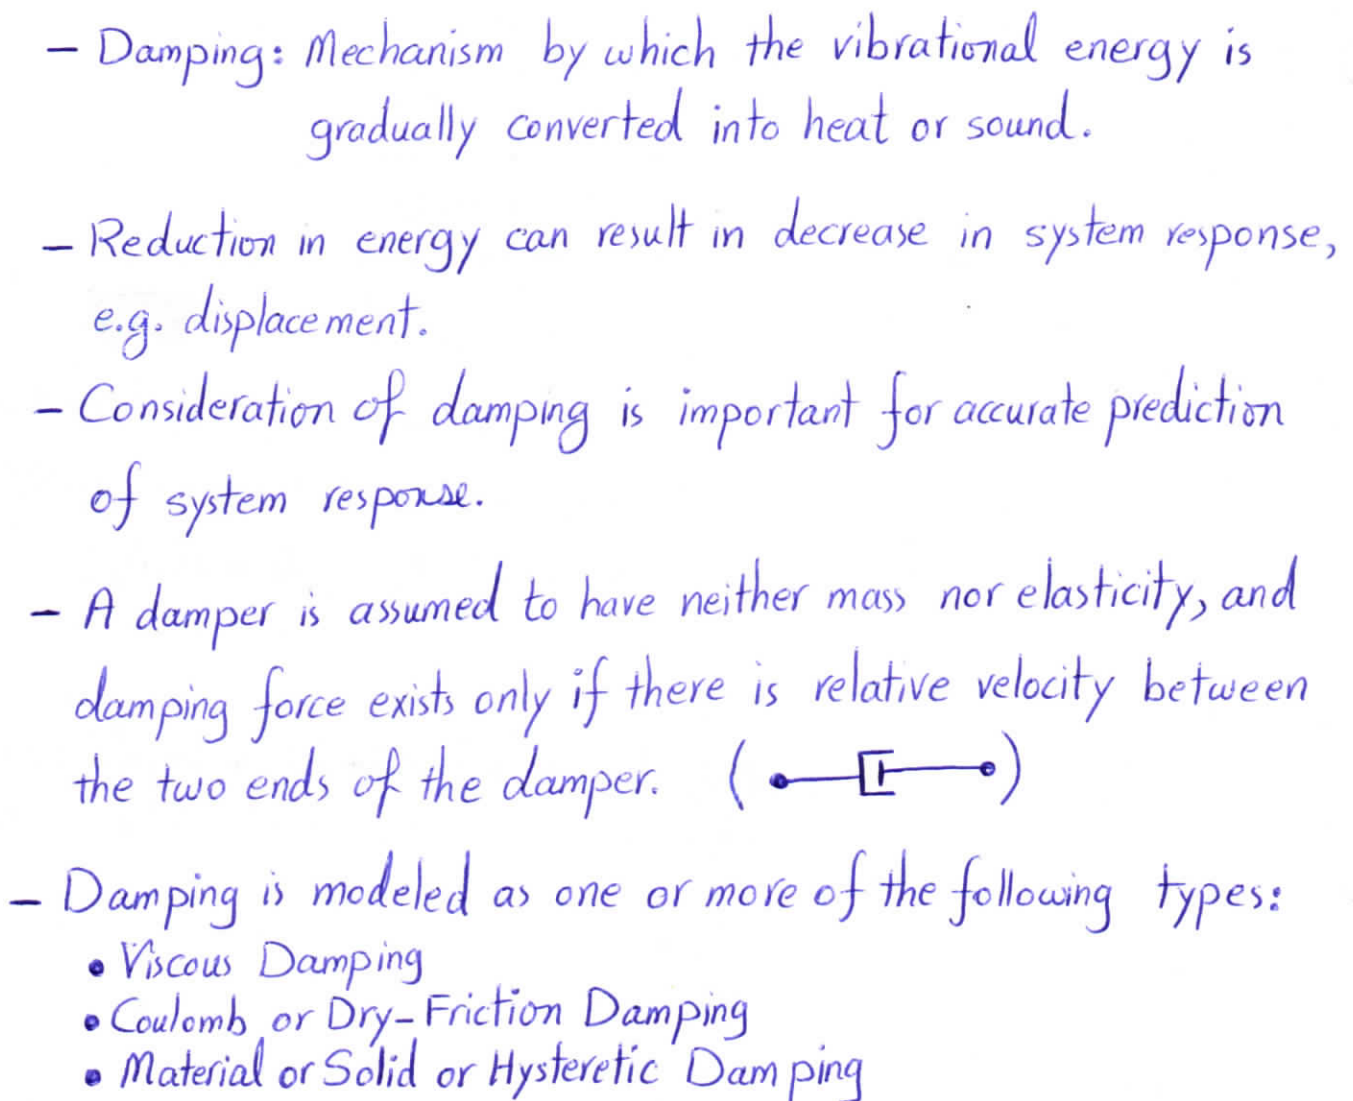 – Damping: Mechanism by which the vibrational energy is
gradually converted into heat or sound.
– Reduction in energy can result in decrease in system response,
e.g. displacement.
– Consideration of damping is important for accurate prediction
of system response.
– A damper is assumed to have neither mass nor elasticity, and
damping force exists only if there is relative velocity between
the two ends of the damper. ( )
– Damping is modeled as one or more of the following types:
• Viscous Damping
• Coulomb or Dry-Friction Damping
• Material or Solid or Hysteretic Damping